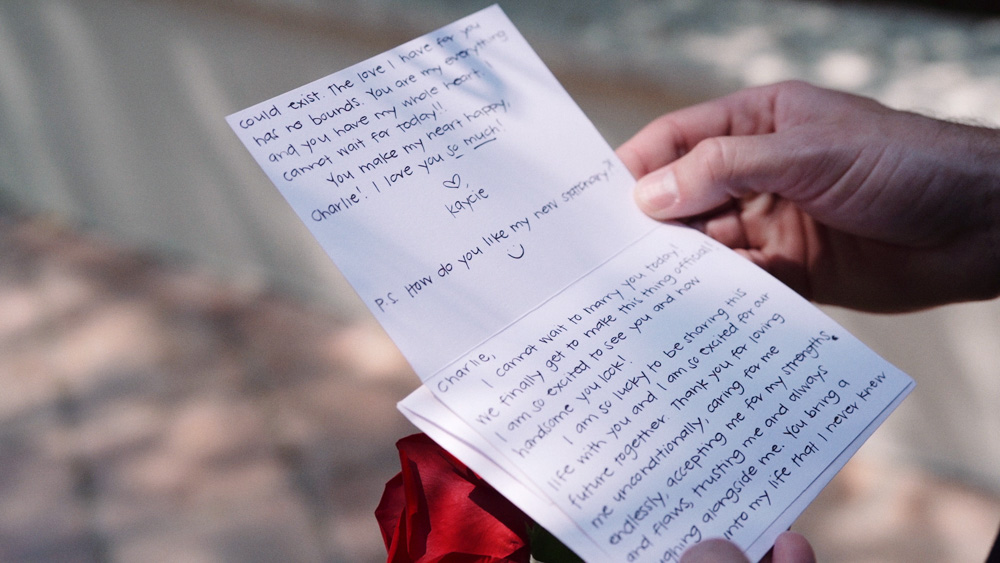 could exist. The love I have for you
has no bounds. You are my everything
and you have my whole heart. I
cannot wait for today!!
You make my heart happy,
Charlie! I love you so much!
♡
Kaycie
P.S. How do you like my new stationary?
Charlie,
I cannot wait to marry you today!
We finally get to make this thing official!
I am so excited to see you and how
handsome you look!
I am so lucky to be sharing this
life with you and I am so excited for our
future together. Thank you for loving
me unconditionally, caring for me
endlessly, accepting me for my strengths
and flaws, trusting me and always
alongside me. You bring a
into my life that I never knew